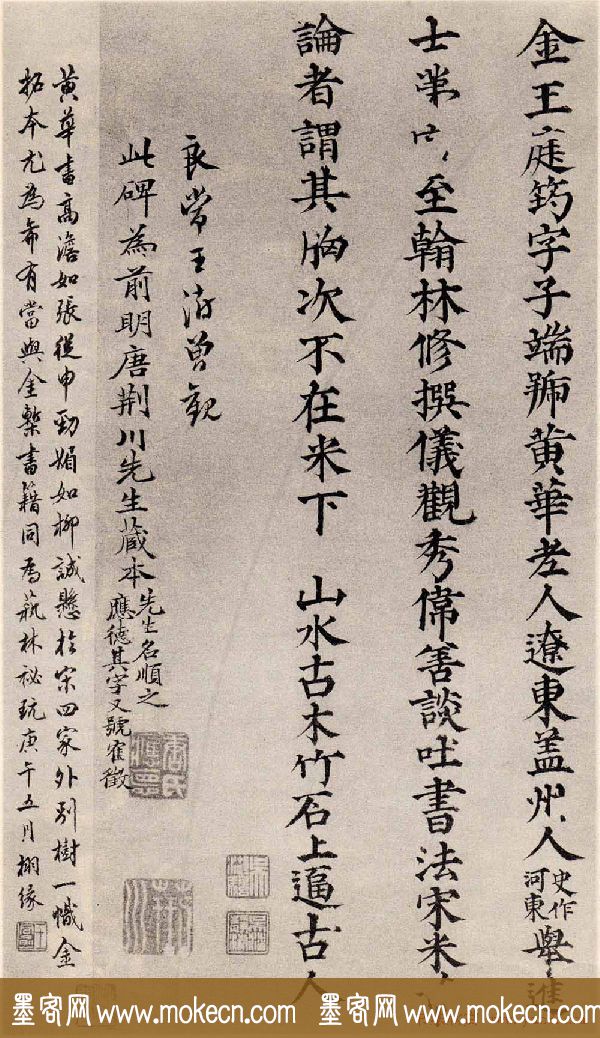 金王庭筠字子端號黃華老人遼東盖州人史作河東舉進
士第 至翰林修撰儀觀秀偉善談吐書法宋米
論者謂其胸次不在米下 山水古木竹石上逼古人
良常王澍曾觀
此碑為前明唐荊川先生藏本先生名順之應德其字又號
唐氏應德
黃華書高澹如張從申勁媚如柳誠懸於宋四家外別樹一幟金
拓本尤為希有當與金槧書籍同為藝林祕玩庚午五月栩緣
墨客网 www.mokecn.com 墨客网 www.mokecn.com